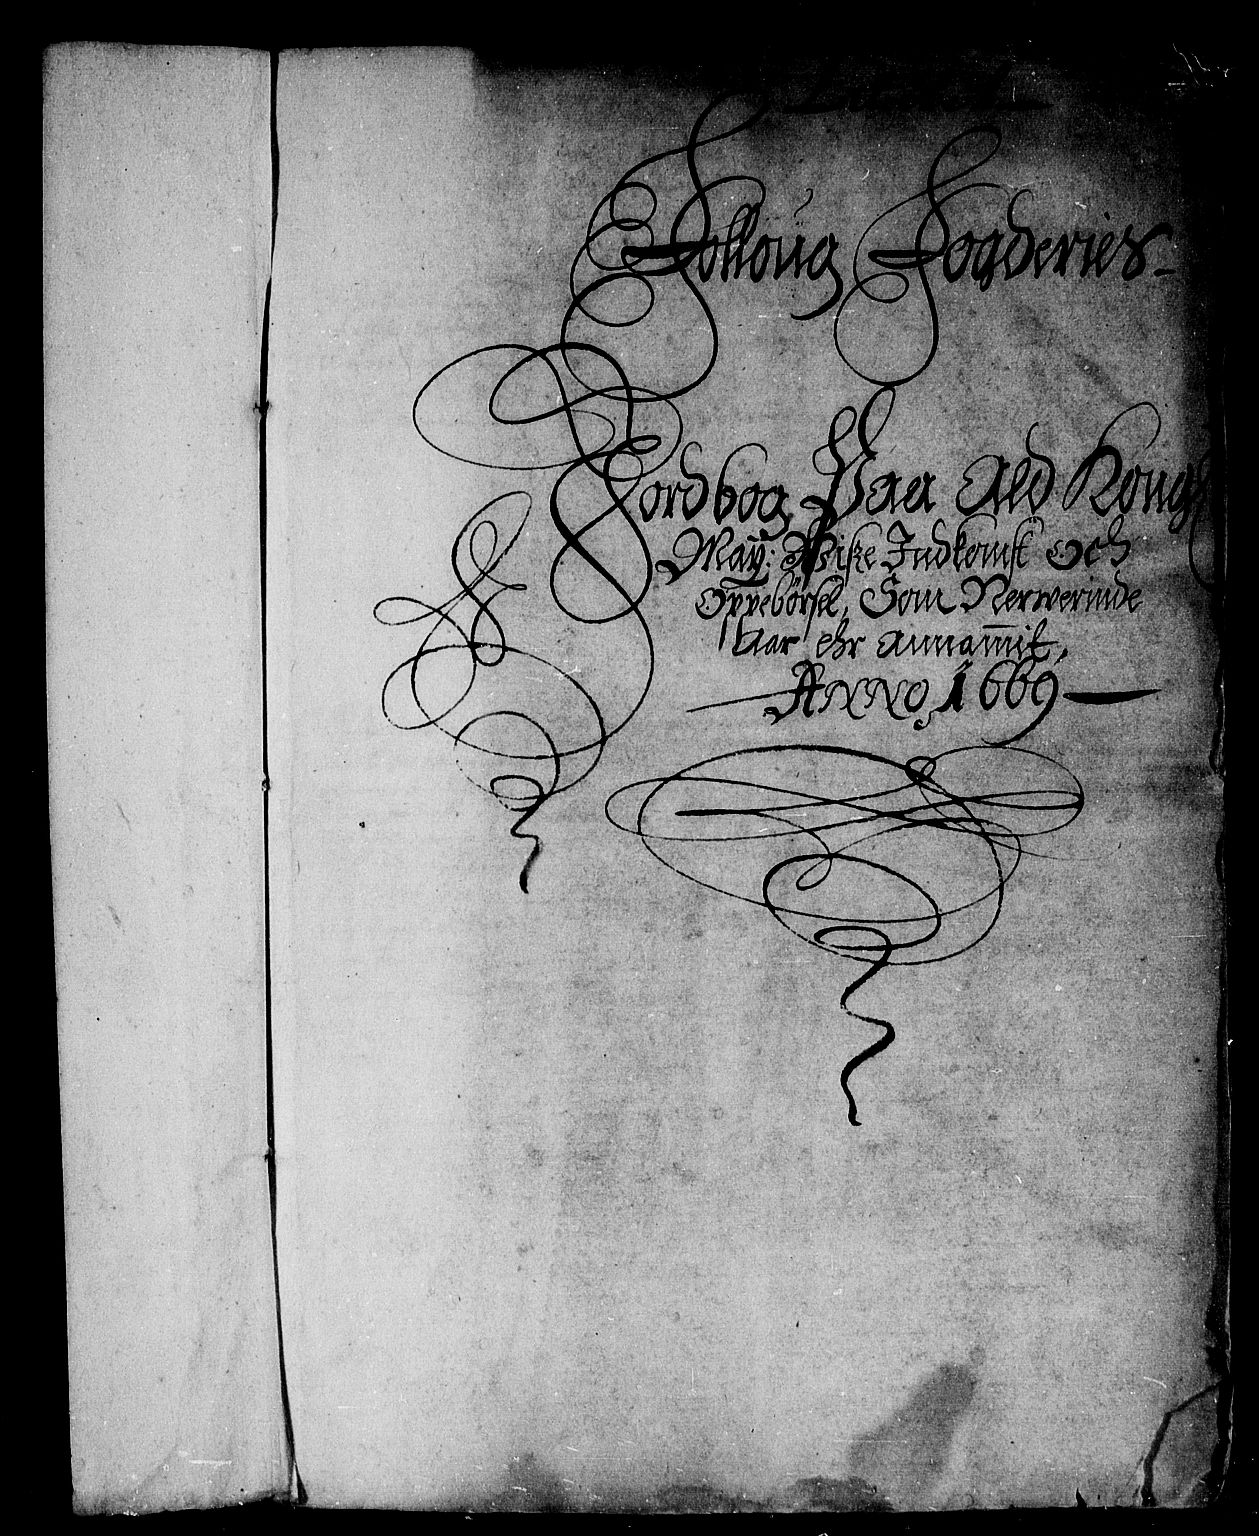 Folloug Fogderies
Jordbog Paa Ald Kong
May: Wiße Indkomst Och
Oppebörsel, Som Nerwerinde
Aar ehr annammit,
ANNO 1669